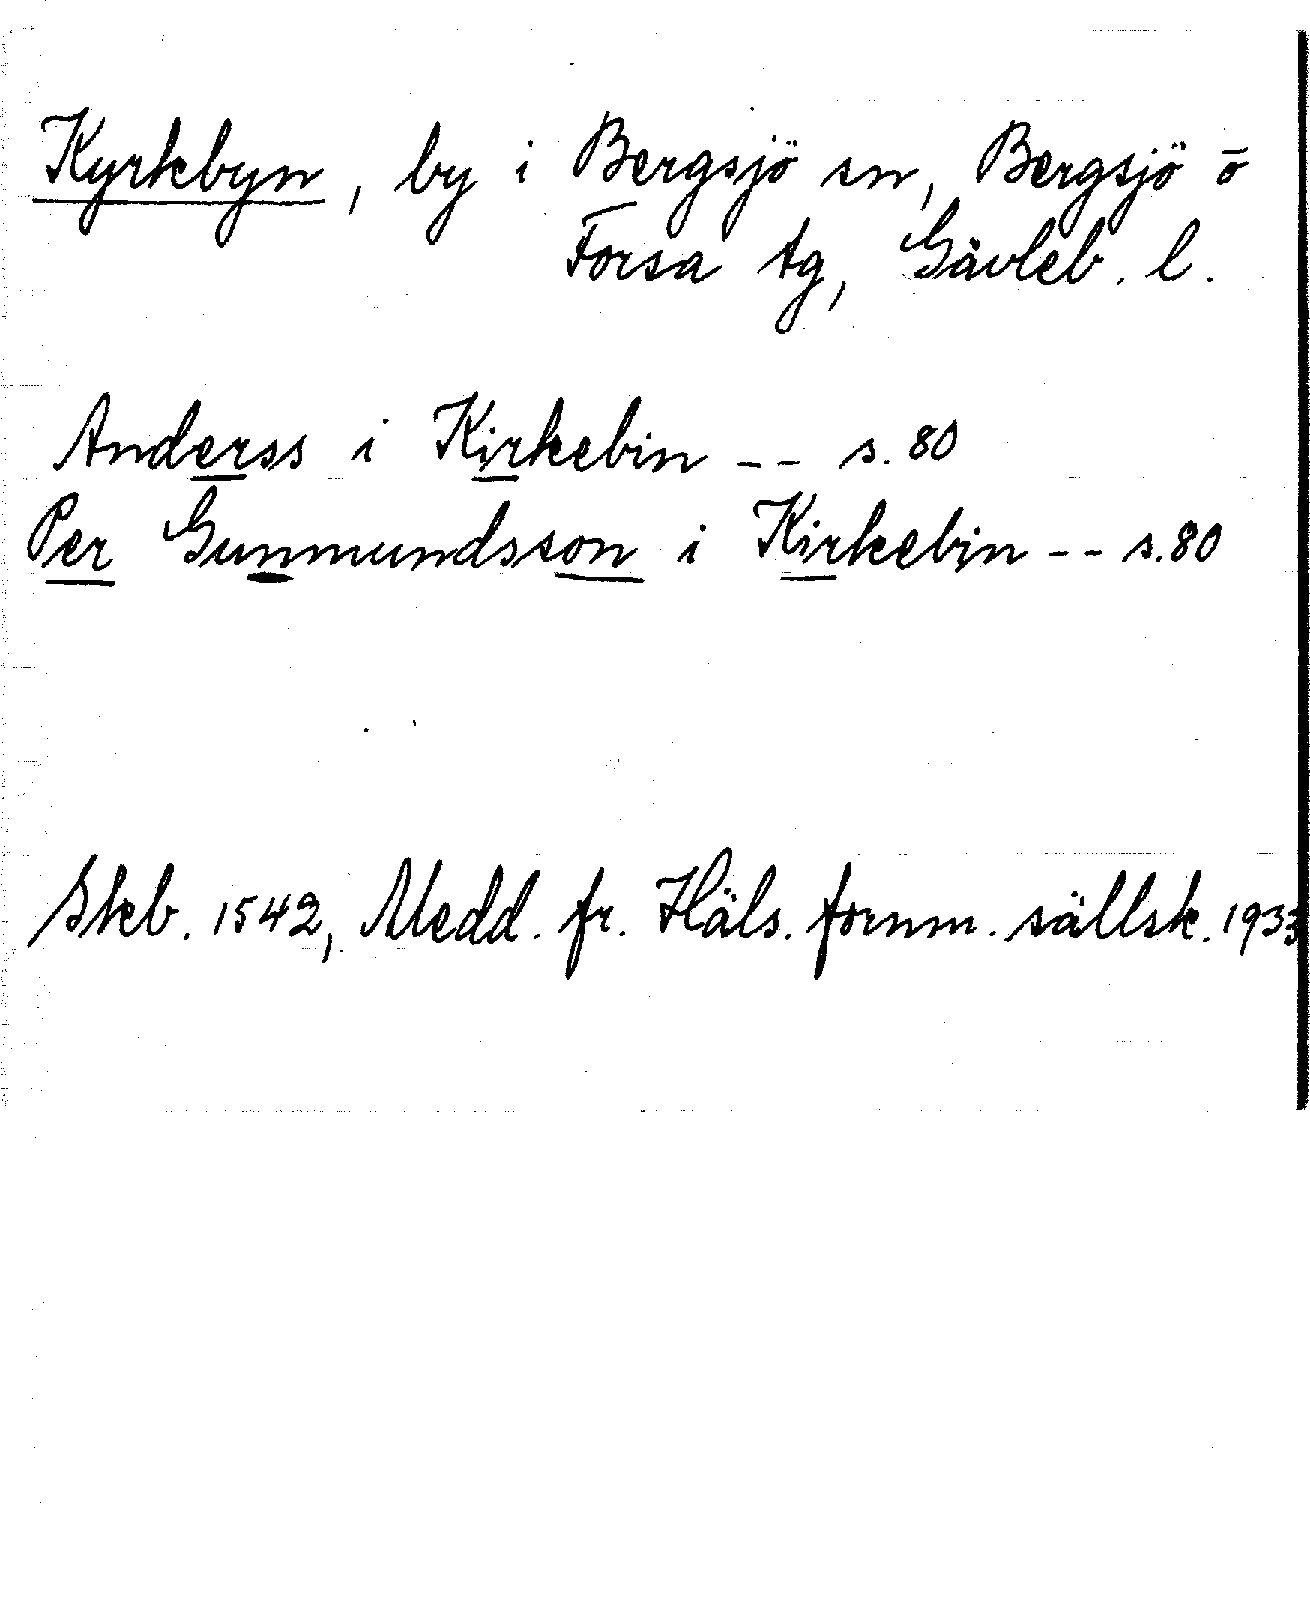 Kyrkebyn, by i Bergsjö sn, Bergsjö o
Forsa tg, Gävleb. l.
Anderss i Kirkebin -- s. 80
Per Gunmundsson i Kirkebin -- s. 80
Skb. 1542, Medd. fr. Häls. fornm. sällsk. 1933